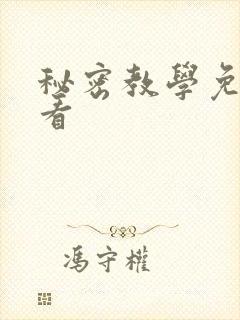 秘密教學免
看
馮守權